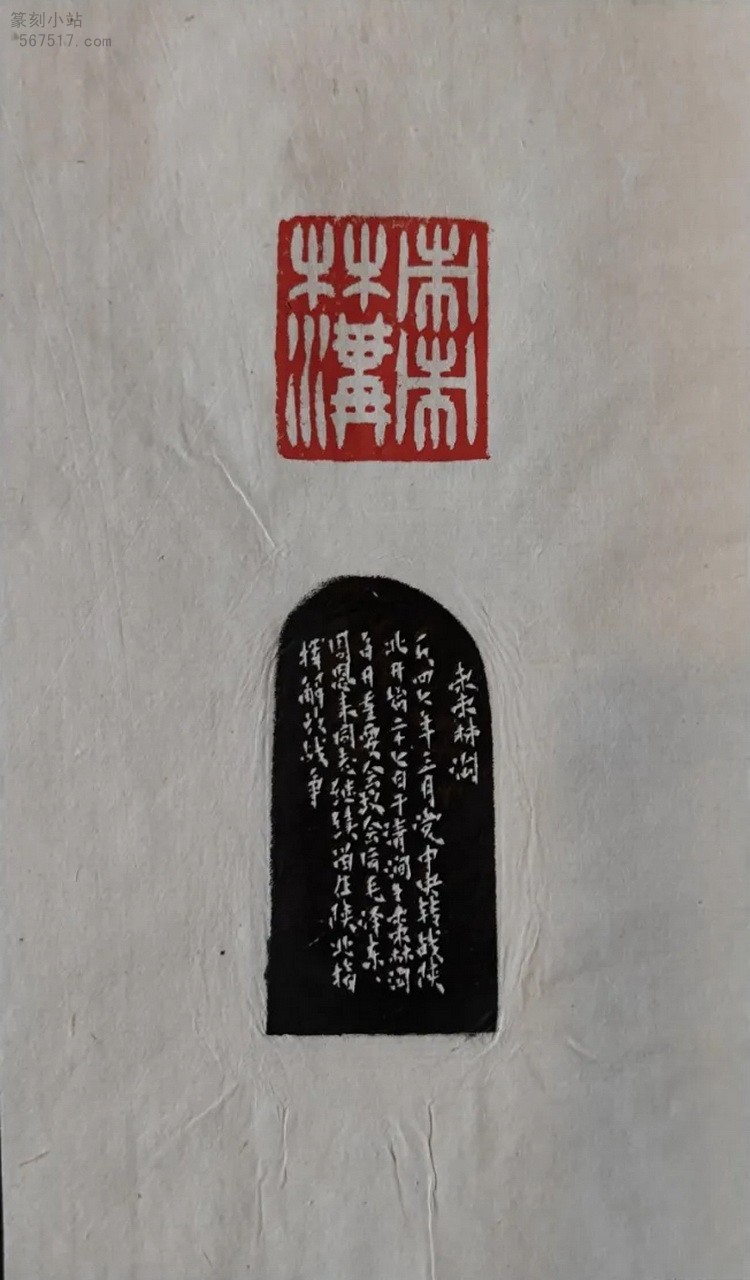 篆刻小站
567517.com
棗
林溝
棗林沟
一九四七年三月党中央转战陕
北开始二十七日于清涧县棗林沟
召开重要会议会后毛泽东、
周恩来同志继续留在陕北指
挥解放战争